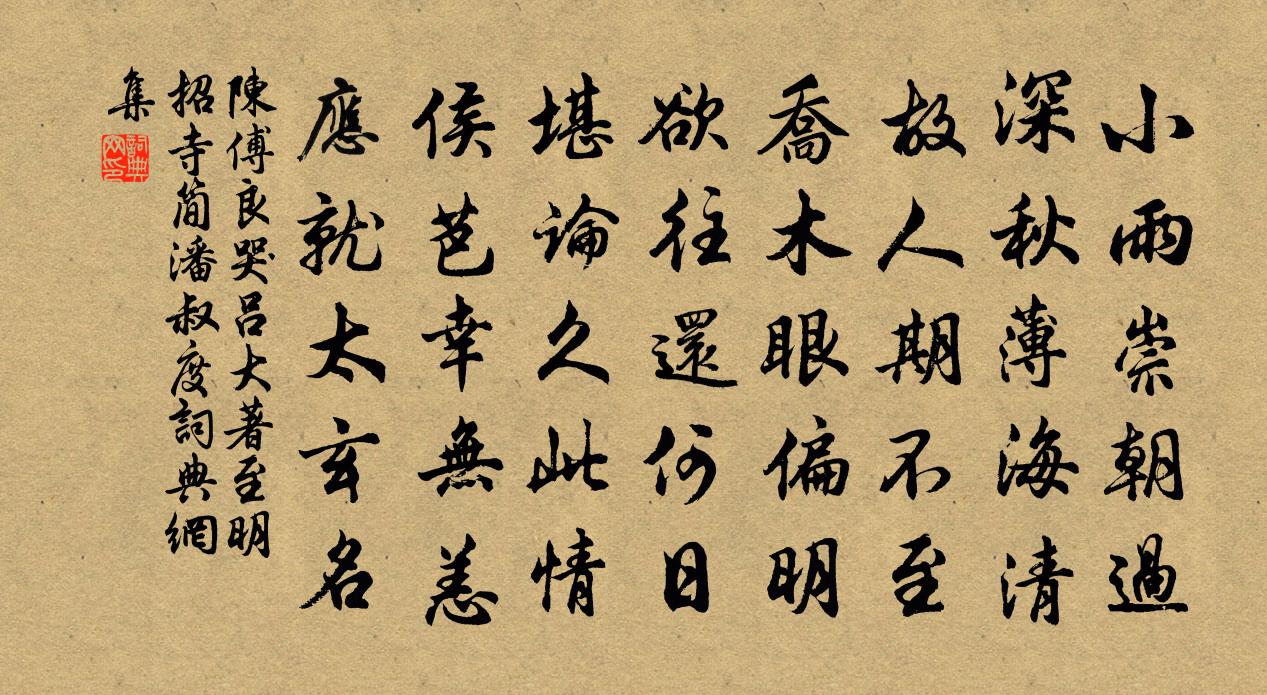 小雨崇朝過
深秋薄海清
故人期不至
喬木眼偏明
欲往還何日
堪論久此情
侯芭幸無恙
應就太玄名
陳傅良哭呂大著至明
招寺簡潘叔度詞典網
集
詞典
网印